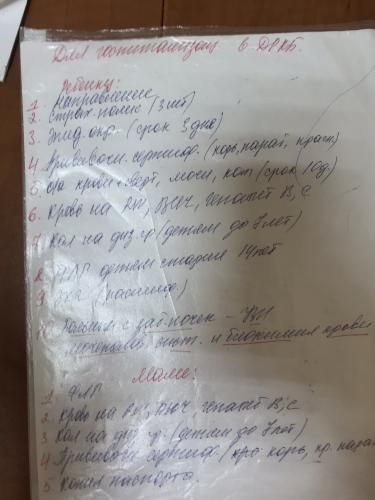 Для госпитализации в ДРКБ.
Ребенку:
1. Направление
2. Страх. полис (3 шт)
3. Эпид. окр. (срок 3 дня)
4. Прививочн. сертифик. (корь, парат, красн)
5. оа крови + сверт, мочи, кал (срок 10д.)
6. Кровь на RW, ВИЧ, гепатит В, С
7. Кал на диз. гр (детям до 2 лет)
8. ФЛГ детям старше 14 лет
9. ЭКГ
10. Больным с заб. почек - УЗИ
мочевывод. сист. и биохимия крови
Маме:
1. ФЛГ
2. Кровь на ВИЧ, гепатит В, С
3. Кал на диз. гр. (детям до 2 лет)
4. Прививочн. сертифик. (про корь, кр. парат
5. Копия паспорта.